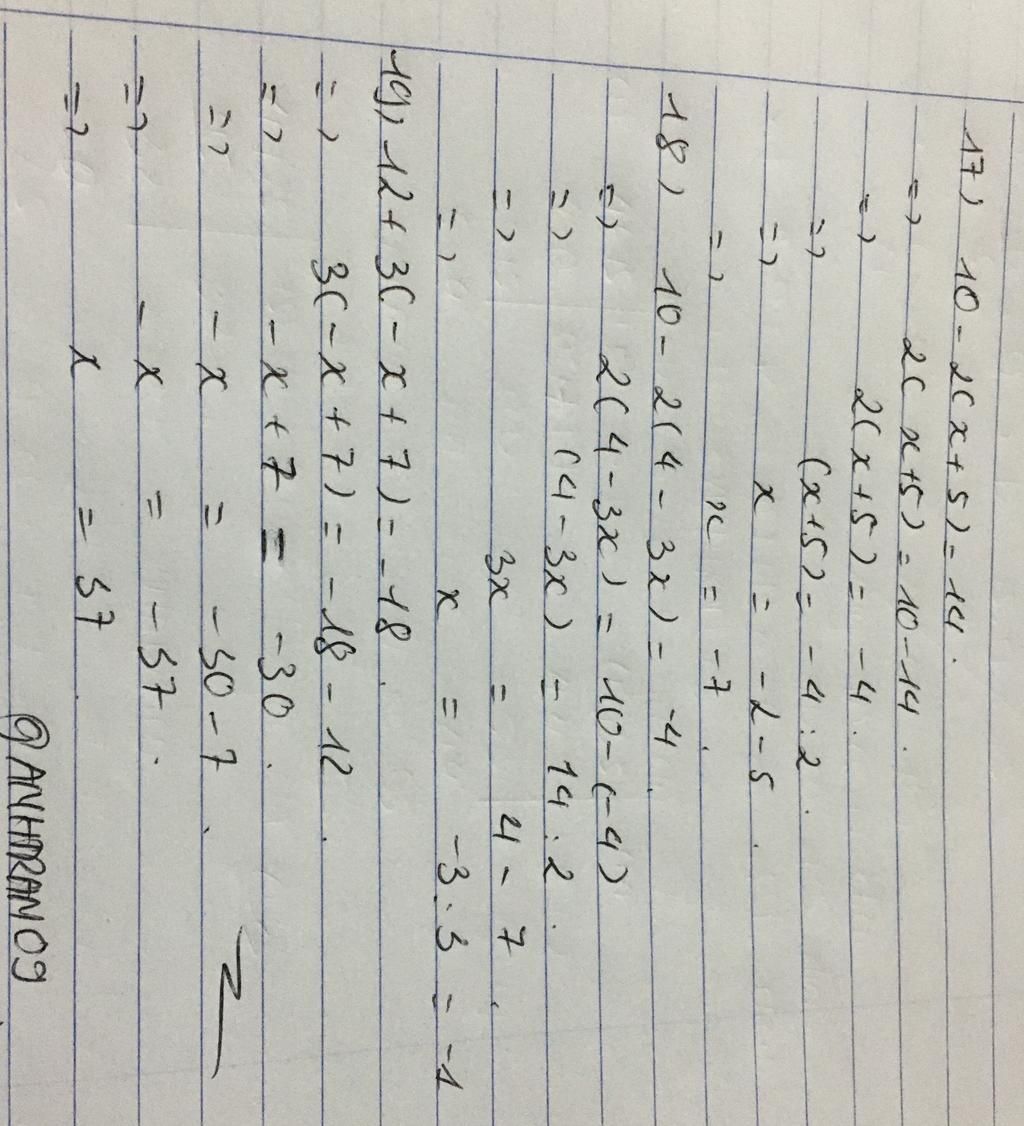 17, 10 - 2(x+5) = 14.
=> 2(x+5) = 10-14.
=> 2(x+5) = -4.
=> (x+5) = -4:2.
=> x = -2-5.
=> x = -7.
18, 10 - 2(4-3x) = -4
=> 2(4-3x) = 10-(-4)
=> (4-3x) = 14:2.
=> 3x = 4-7.
=> x = -3:3 = -1
19, 12+3(-x+7) = -18.
=> 3(-x+7) = -18-12.
=> -x+7 = -30.
=> -x = -30-7.
=> -x = -37.
=> x = 37.